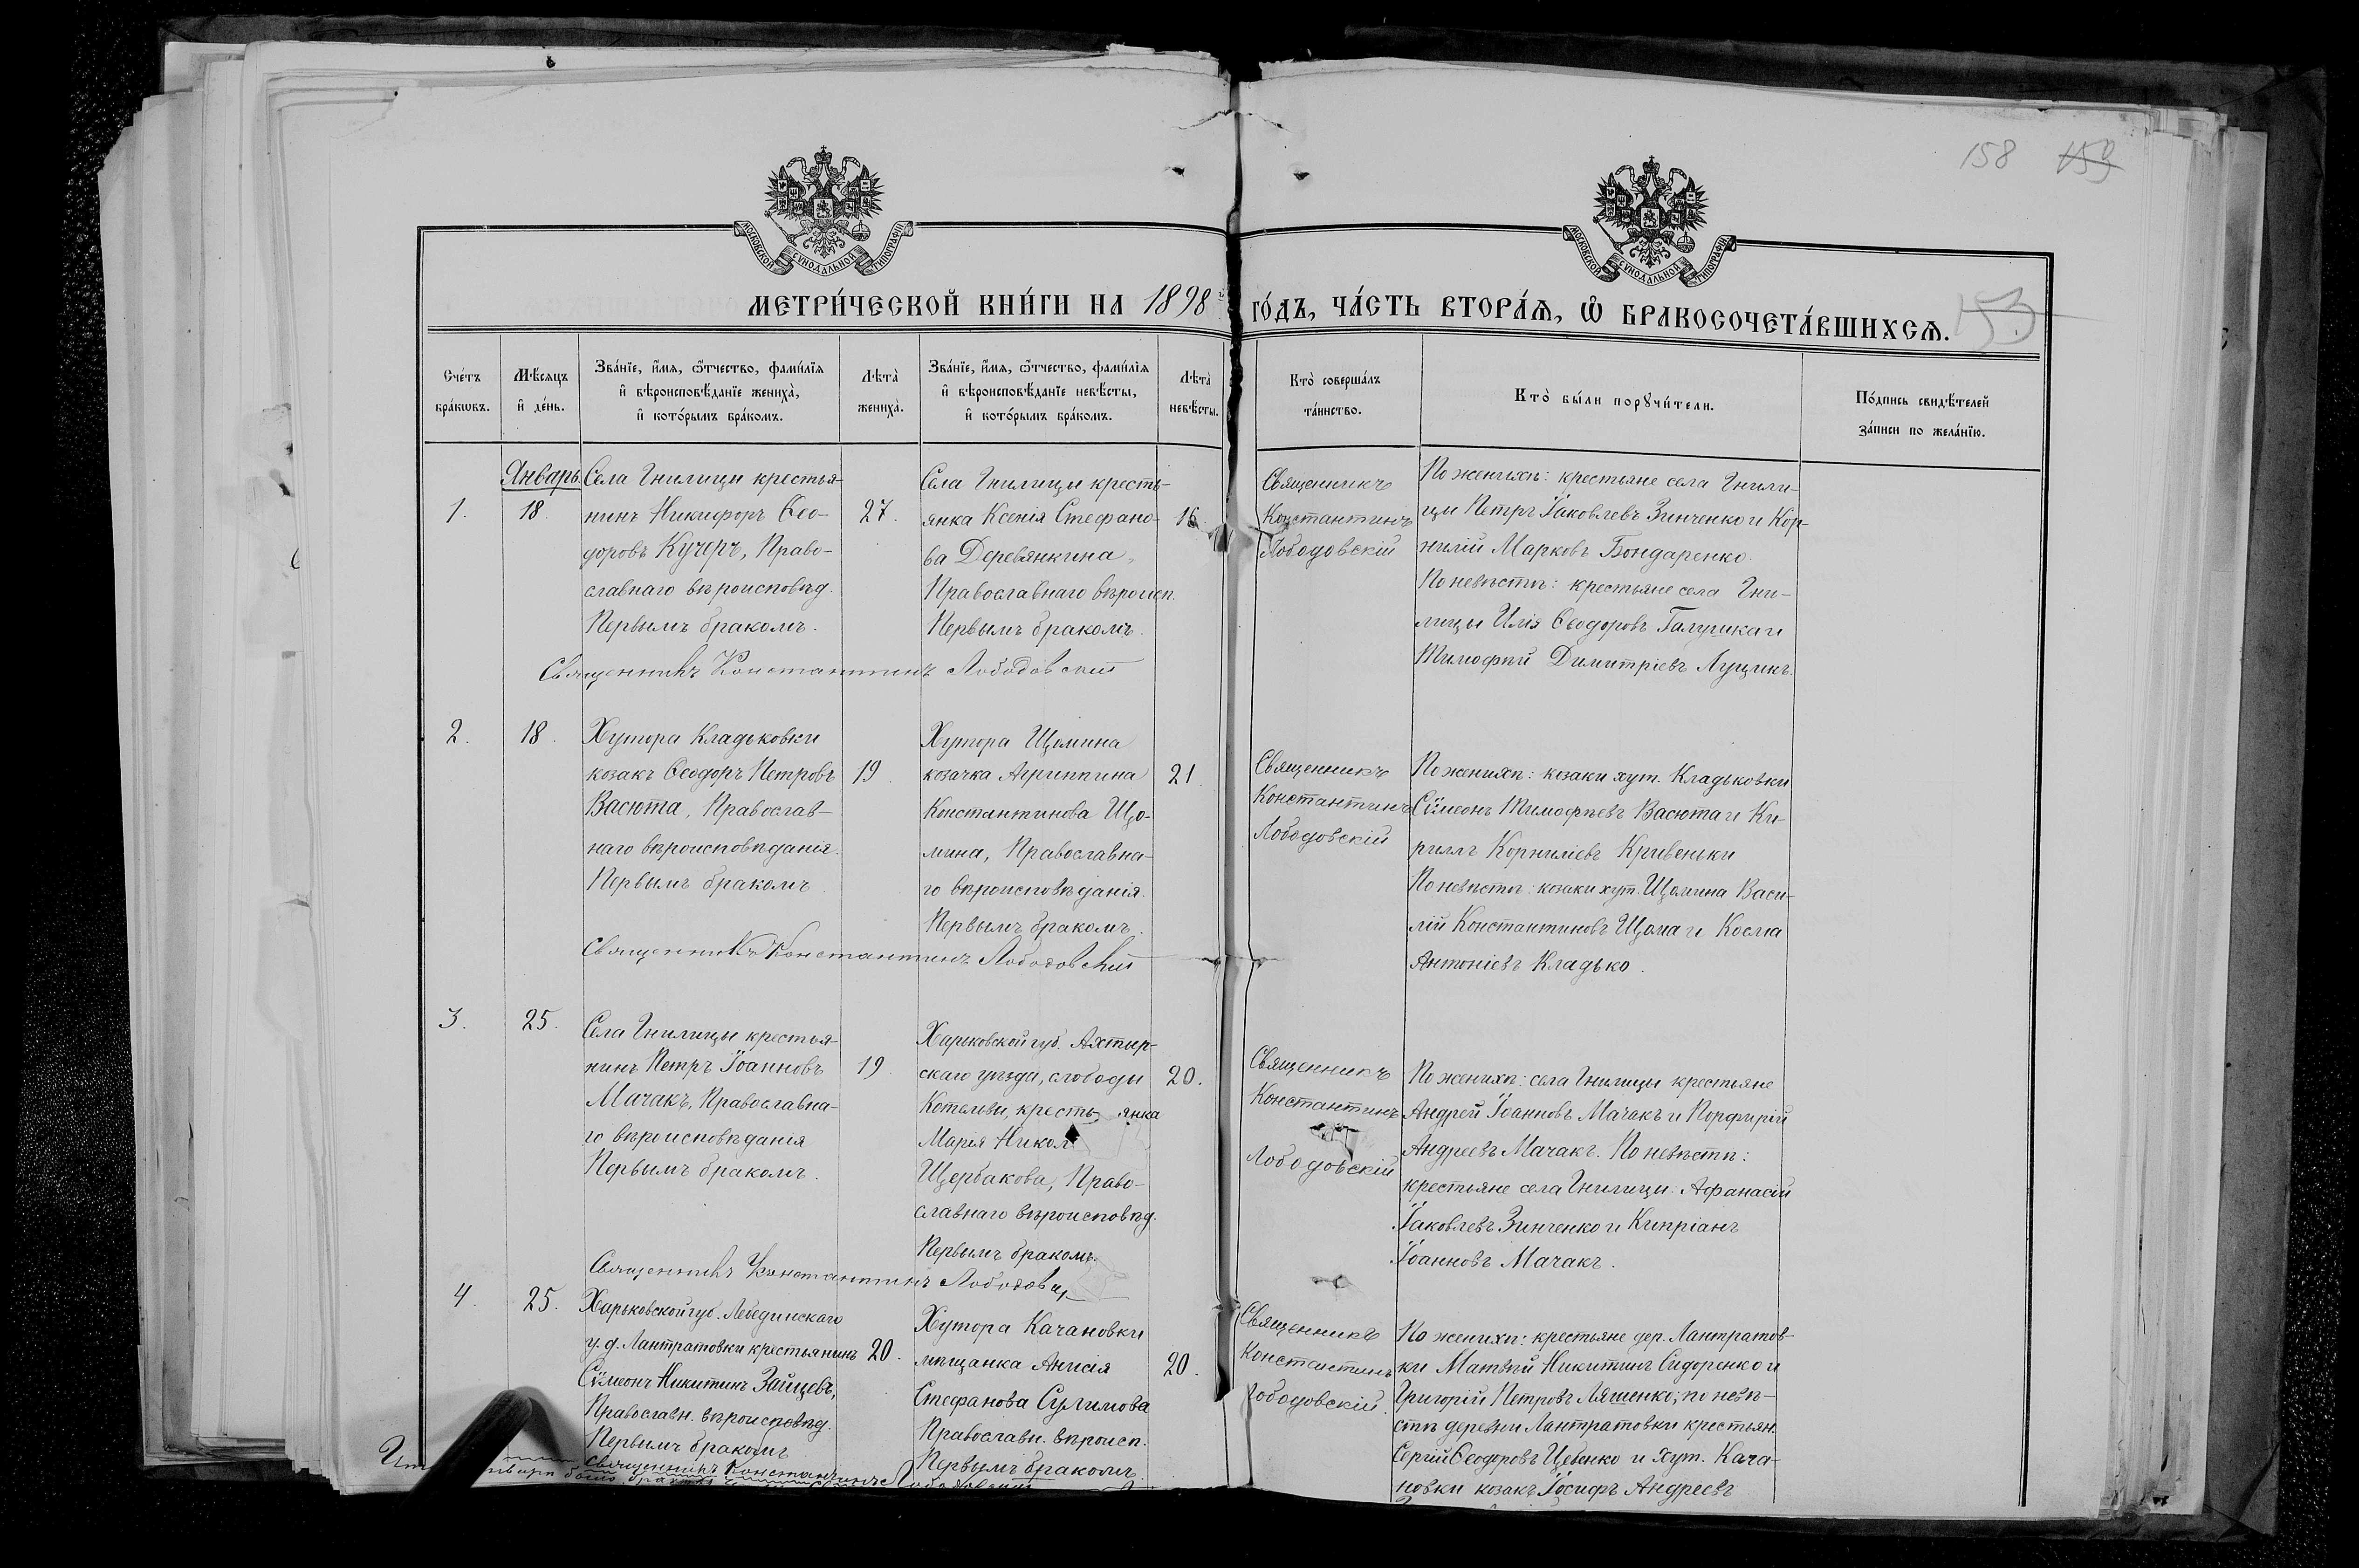 158 159
МОСКОВСКОЙ СѴНОДАЛЬНОЙ ТИПОГРАФІИ
МОСКОВСКОЙ СѴНОДАЛЬНОЙ ТИПОГРАФІИ
МЕТРИ́ЧЕСКОЙ КНИ́ГИ НА 1898й ГО́ДЪ, ЧА́СТЬ ВТОРА́Ѧ, Ѡ҆ БРАКОСОЧЕТА́ВШИХСѦ. 153
Сче́тъ бра́кѡвъ.
Мѣ́сѧцъ и҆ де́нь.
Зва́нїе, и҆́мѧ, ѻ҆́тчество, фами́лїѧ
и҆ вѣроисповѣ́данїе жениха̀,
и҆ кото́рымъ бра́комъ.
Лѣта̀ жениха̀.
Зва́нїе, и҆́мѧ, ѻ҆́тчество, фами́лїѧ
и҆ вѣроисповѣ́данїе невѣ́сты,
и҆ кото́рымъ бра́комъ.
Лѣта̀ невѣ́сты.
Кто̀ соверша́лъ
та́инство.
Кто̀ бы́ли порꙋчи́тели.
По́дпись свидѣ́телей
за́писи по жела́нїю.
Январь
1.
18.
Села Гнилицы крестья-
нинъ Никифоръ Ѳео-
доровъ Кучеръ, Право-
славнаго вѣроисповѣд.
Первымъ бракомъ.
27.
Села Гнилицы кресть-
янка Ксенія Стефано-
ва Деревянкина,
Православнаго вѣроисп.
Первымъ бракомъ.
16.
Священникъ
Константинъ
Лободовскій
По женихѣ: крестьяне села Гнили-
цы Петръ Іаковлевъ Зинченко и Кор-
нилій Марковъ Бондаренко.
По невѣстѣ: крестьяне села Гни-
лицы Илія Ѳеодоровъ Галушка и
Тимофѣй Димитріевъ Лущикъ.
Священникъ Константинъ Лободовскій
2.
18.
Хутора Кладьковки
козакъ Ѳеодоръ Петровъ
Васюта, Православ-
наго вѣроисповѣданія.
Первымъ бракомъ
19.
Хутора Щомина
козачка Агриппина
Константинова Що-
мина, Православна-
го вѣроисповѣданія.
Первымъ бракомъ.
21
Священникъ
Константинъ
Лободовскій
По женихѣ: козаки хут. Кладьковки
Сѵмеонъ Тимофѣевъ Васюта и Ки-
риллъ Корниліевъ Кривеньки
По невѣстѣ: козаки хут. Щомина Васи-
лій Константиновъ Щома и Косма
Антоніевъ Кладько.
Священникъ Константинъ Лободовскій
3.
25.
Села Гнилицы крестья-
нинъ Петръ Іоанновъ
Мачакъ, Православна-
го вѣроисповѣданія
Первымъ бракомъ.
19.
Харьковской губ. Ахтыр-
скаго уѣзда, слободы
Котельвы, кресть- янка
Марія Никол
Щербакова, Право-
славнаго вѣроисповѣд.
Первымъ бракомъ.
20.
Священникъ
Константинъ
Лободовскій
По женихѣ: села Гнилицы крестьяне
Андрей Іоанновъ Мачакъ и Порфирій
Андреевъ Мачакъ. По невѣстѣ:
крестьяне села Гнилицы: Афанасій
Іаковлевъ Зинченко и Кипріанъ
Іоанновъ Мачакъ.
Священникъ Константинъ
4.
25.
Харьковской губ. Лебединскаго
у. д. Лантратовки крестьянинъ
Сѵмеонъ Никитинъ Зайцевъ,
Православн. вѣроисповѣд.
Первымъ бракомъ
20.
Хутора Качановки
мѣщанка Анисія
Стефанова Сулимова
Православн. вѣроисп.
Первымъ бракомъ.
20.
Священникъ
Константинъ
Лободовскій.
По женихѣ: крестьяне дер. Лантратов-
ки Матвѣй Никитинъ Сидоренко и
Григорій Петровъ Ляшенко; по невѣ-
стѣ деревни Лантратовки крестьян.
Сергій Ѳеодоровъ Цебенко и хут. Кача-
новки козакъ Іосифъ Андреевъ
Священникъ Константинъ